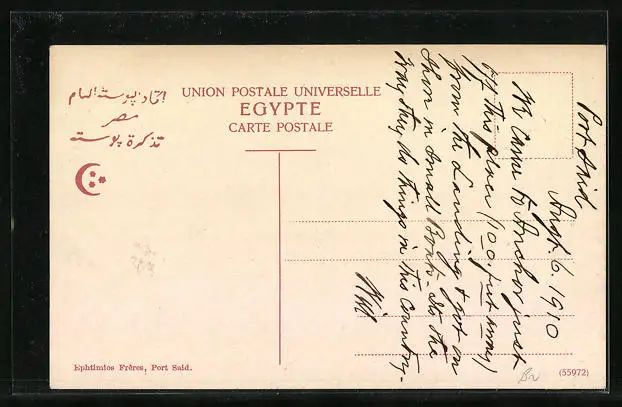 اتحاد پوستة العام
مصر
تذكرة پوسته
UNION POSTALE UNIVERSELLE
EGYPTE
CARTE POSTALE
Port Said
Augt. 6. 1910
We Came to Anchor just
off this place (100 feet away)
from the Landing & got on
Shore in Small Boats. Its the
way they do things in this Country.
Will
Ephtimios Frères, Port Said.
(55972)